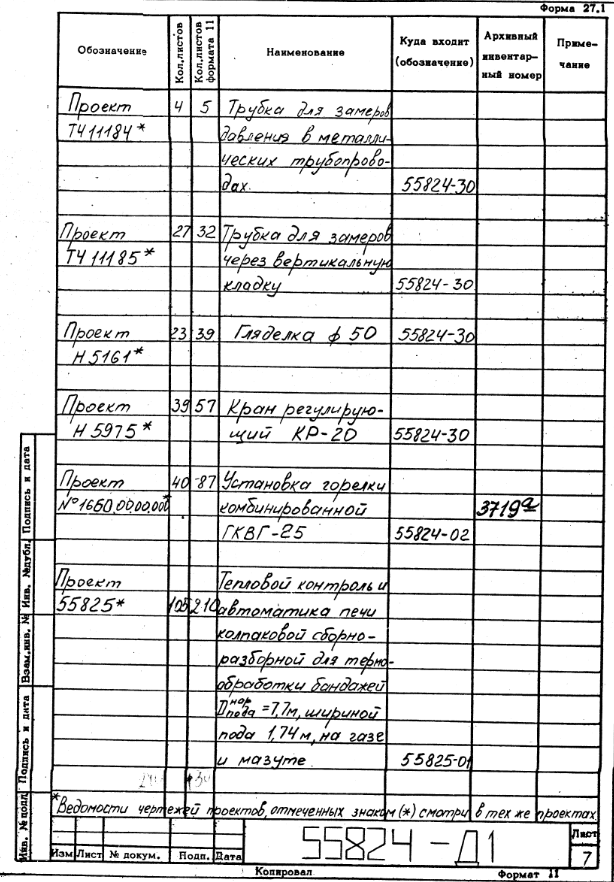 Форма 27.1
Обозначение
Кол.листов
Кол.листов формата 11
Наименование
Куда входит (обозначение)
Архивный инвентар-ный номер
Приме-чание
Проект 4 5 Трубка для замеров
ТЧ 11184* давления в металли-
ческих трубопрово-
дах. 55824-30
Проект 27 32 Трубка для замеров
ТЧ 11185* через вертикальную
кладку 55824-30
Проект 23 39 Гляделка ф 50 55824-30
Н 5161*
Проект 39 57 Кран регулирую-
Н 5975* щий КР-20 55824-30
Проект 40 87 Установка горелки
№1650.00.00.000* комбинированной 3719а
ГКВГ-25 55824-02
Проект Тепловой контроль и
55825* 105 210 автоматика печи
колпаковой сборно-
разборной для термо-
обработки бандажей
Dпода нар =7,7м, шириной
пода 1,74 м, на газе
и мазуте 55825-01
*Ведомости чертежей проектов, отмеченных знаком (*) смотри в тех же проектах
Инв. № подл.
Подпись и дата
Взам.инв. №
Инв. №дубл.
Подпись и дата
55824-Д1
Лист
7
Изм Лист № докум. Подп. Дата
Копировал
Формат 11